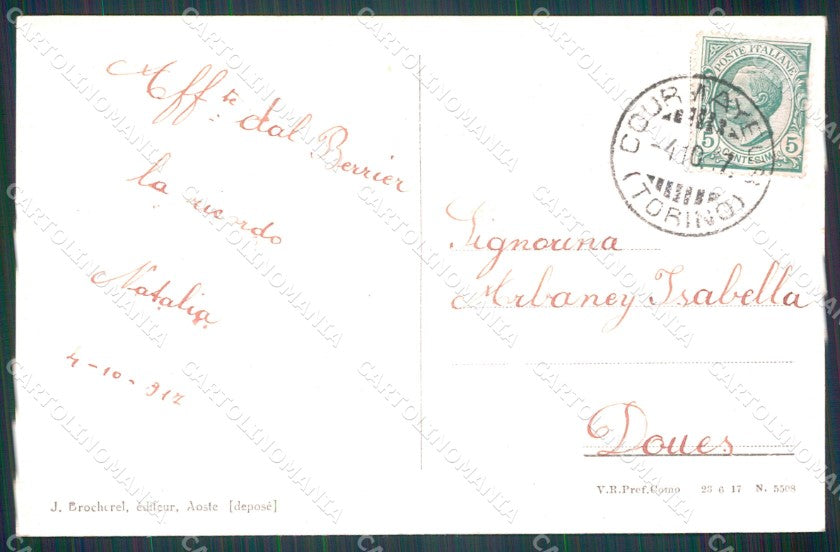 Aff.te dal Berrier
la ricordo
Natalia
4-10-917
J. Brocherel, éditeur, Aoste [deposé]
POSTE ITALIANE
5 5
CENTESIMI
COURMAYEUR
-4.10.17.
(TORINO)
Signorina
Arbaney Isabella
Doues
V.R.Pref.Como 23 6 17 N. 5508
CARTOLINOMANIA